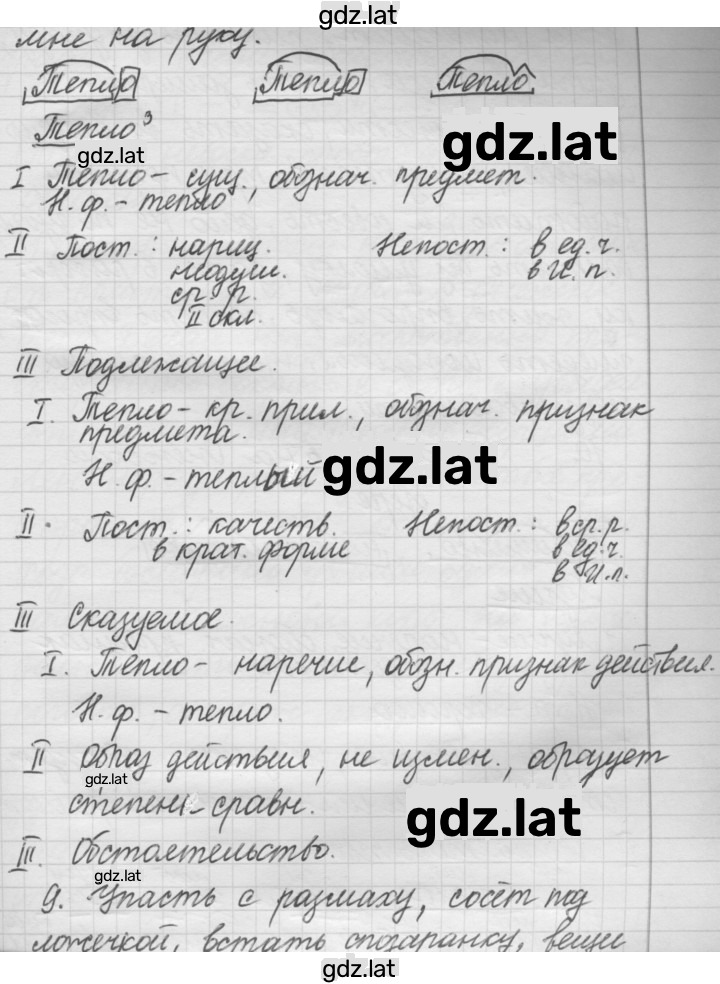 gdz.lat
мне на руку.
Тепло Тепло Тепло
Тепло³
gdz.lat
gdz.lat
I Тепло - сущ., обознач. предмет.
Н. ф. - тепло
II Пост.: нариц. Непост.: в ед. ч.
неодуш. в И. п.
ср. р.
II скл.
III Подлежащее.
I. Тепло - кр. прил., обознач. признак
предмета.
Н. ф. - теплый
gdz.lat
II. Пост.: качеств. Непост.: в ср. р.
в крат. форме в ед. ч.
в И. п.
III Сказуемое.
I. Тепло - наречие, обозн. признак действия.
Н. ф. - тепло.
II Образ действия, не измен., образует
gdz.lat
степени сравн.
gdz.lat
III. Обстоятельство.
gdz.lat
9. Упасть с размаху, сосёт под
ложечкой, встать спозаранку, вещи
gdz.lat